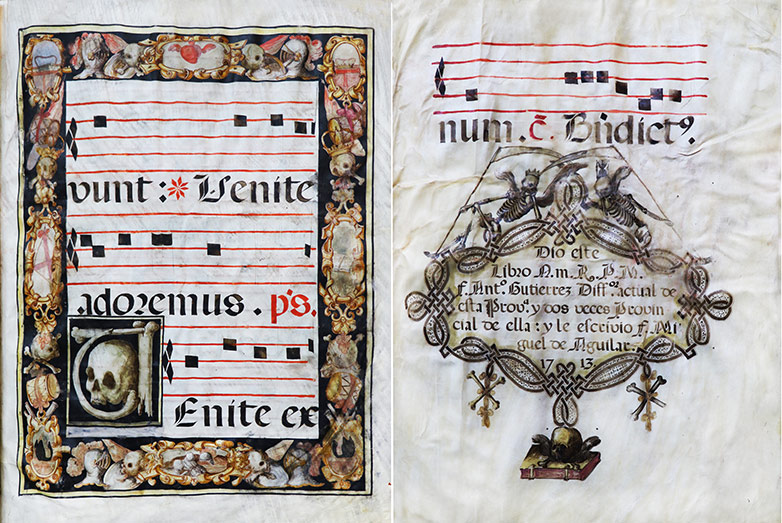 vunt : * Venite
adoremus . ps.
VEnite ex
num . c̄. Bn̄dictꝰ.
Dio este
Libro N. m. R. P. N.
f. Antº. Gutierrez Diffºʳ. actual de
esta Provª. y dos veces Provin
cial de ella : y le escrivio f. Mi
guel de Aguilar.
1713